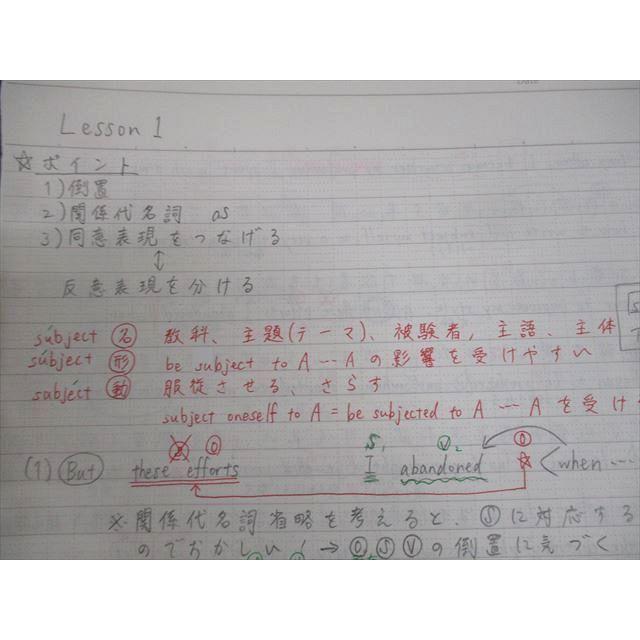 Lesson 1
☆ポイント
1)倒置
2)関係代名詞 as
3)同意表現をつなげる
↕
反意表現を分ける
súbject 名 教科、主題(テーマ)、被験者,主語、主体
súbject 形 be subject to A … Aの影響を受けやすい
subjéct 動 服従させる、さらす
subject oneself to A = be subjected to A … Aを受け
S₁ V₂ O
(1) But these efforts I abandoned ☆ <when …
※関係代名詞省略を考えると、Ⓢに対応する
のでおかしい!→ⓄⓈⓋの倒置に気づく